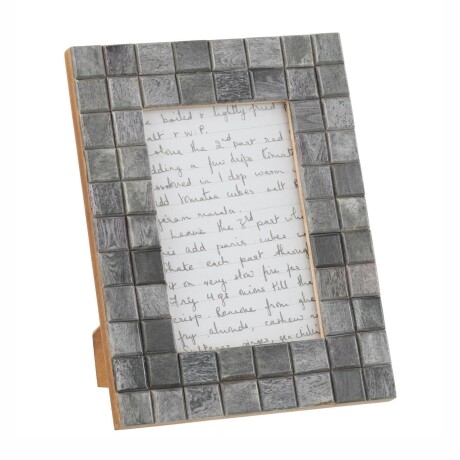 boiled & lightly fried
salt & W.P.
colour the 2nd part red
adding a few drops tomato
dissolved in 1 dsp warm
add tomato cubes salt &
garam masala.
Leave the 3rd part whi
add panir cubes
Shake each part throu
it on very slow fire for
Fry 4 gs onions till th
crisp. Remove from ghe
fry almonds, cashew n
ginger,